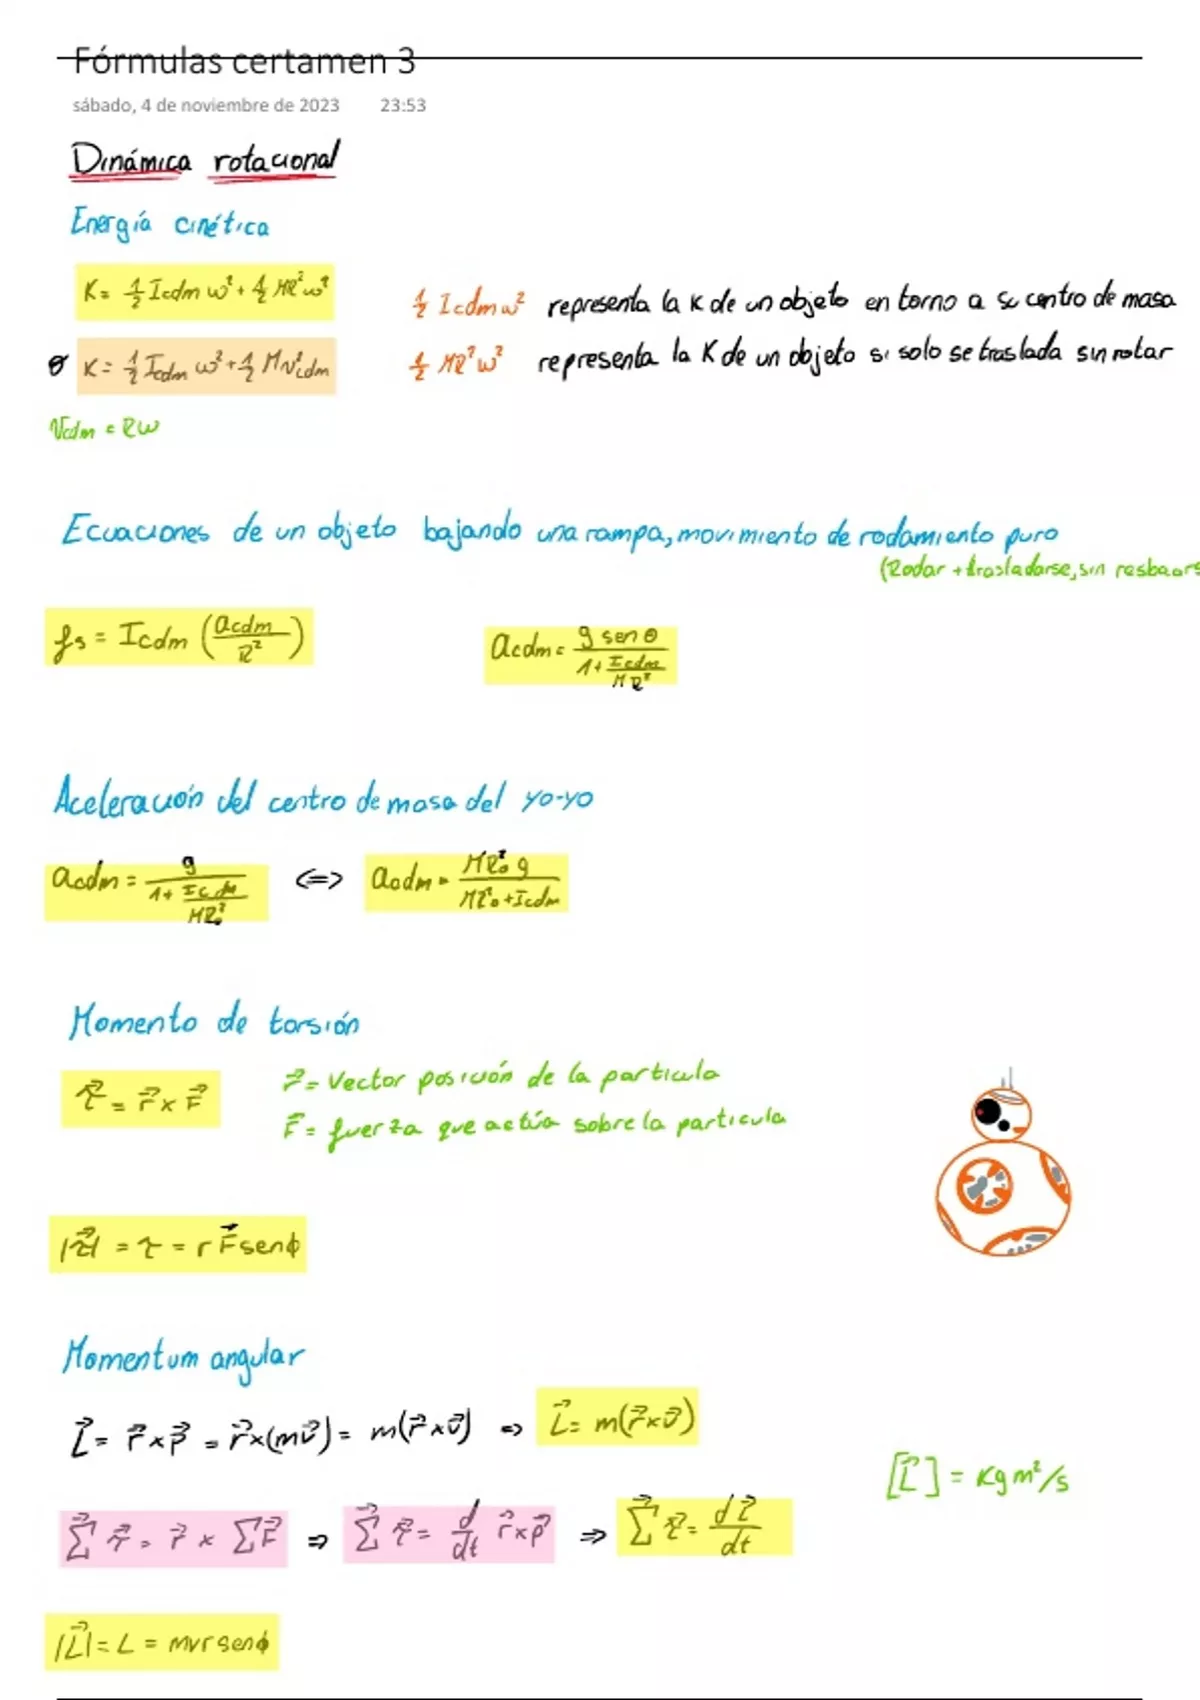 Fórmulas certamen 3
sábado, 4 de noviembre de 2023 23:53
Dinámica rotacional
Energía cinética
K = 1/2 Icdm ω² + 1/2 MR²ω²
1/2 Icdm ω² representa la K de un objeto en torno a su centro de masa
o K = 1/2 Icdm ω² + 1/2 M v²cdm
1/2 MR²ω² representa la K de un objeto si solo se traslada sin rotar
Vcdm = Rω
Ecuaciones de un objeto bajando una rampa, movimiento de rodamiento puro
(Rodar + trasladarse, sin resbalars
fs = Icdm (acdm / R²)
acdm = g sen θ / (1 + Icdm / MR²)
Aceleración del centro de masa del yo-yo
acdm = g / (1 + Icdm / MR₀²) <=> acdm = MR₀² g / (MR₀² + Icdm)
Momento de torsión
τ⃗ = r⃗ x F⃗
r⃗ = Vector posición de la partícula
F⃗ = fuerza que actúa sobre la partícula
|τ⃗| = τ = r F⃗ sen ϕ
Momentum angular
L⃗ = r⃗ x p⃗ = r⃗ x (m v⃗) = m(r⃗ x v⃗) => L⃗ = m(r⃗ x v⃗)
[L⃗] = Kg m²/s
Σ τ⃗ = r⃗ x Σ F⃗ => Σ τ⃗ = d/dt r⃗ x p⃗ => Σ τ⃗ = dL⃗/dt
|L⃗| = L = mvr sen ϕ